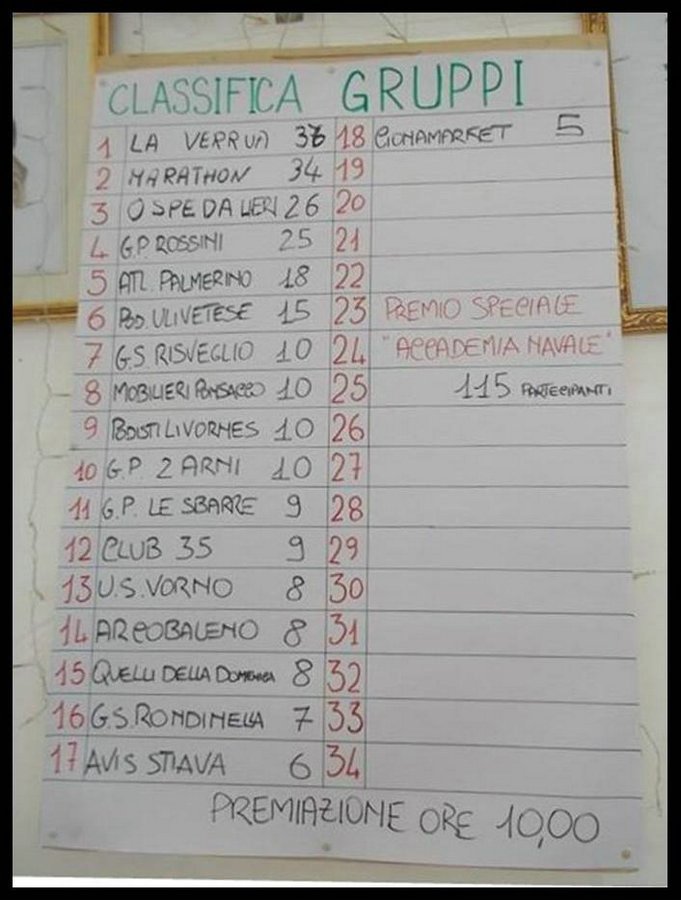 CLASSIFICA GRUPPI
1 LA VERRUA 36
2 MARATHON 34
3 OSPEDALIERI 26
4 G.P. ROSSINI 25
5 ATL. PALMERINO 18
6 POD. ULIVETESE 15
7 G.S RISVEGLIO 10
8 MOBILIERI PONSACCO 10
9 PODISTI LIVORNES 10
10 G.P. 2 ARNI 10
11 G.P. LE SBARRE 9
12 CLUB 35 9
13 U.S. VORNO 8
14 ARCOBALENO 8
15 QUELLI DELLA DOMENICA 8
16 G.S. RONDINELLA 7
17 AVIS STIAVA 6
18 CIONAMARKET 5
19
20
21
22
23 PREMIO SPECIALE
24 "ACCADEMIA NAVALE"
25 115 PARTECIPANTI
26
27
28
29
30
31
32
33
34
PREMIAZIONE ORE 10,00